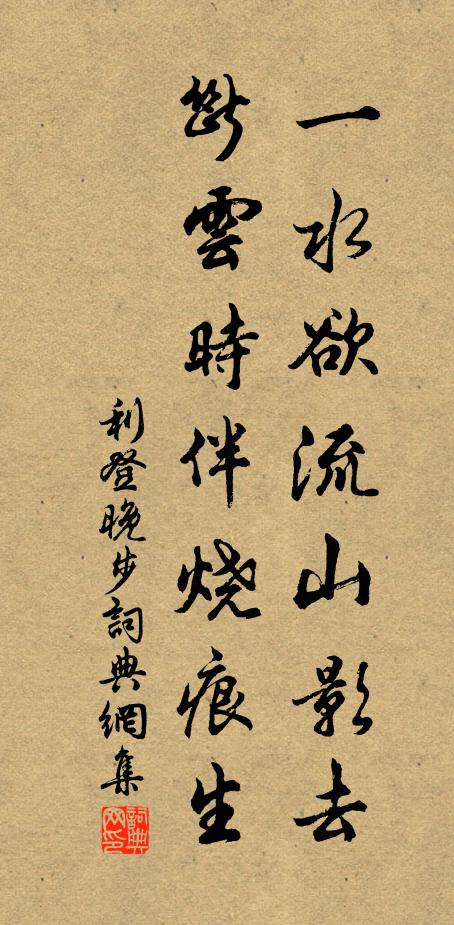 一水欲流山影去
斷雲時伴燒痕生
利登晚步詞典網集
詞典網印